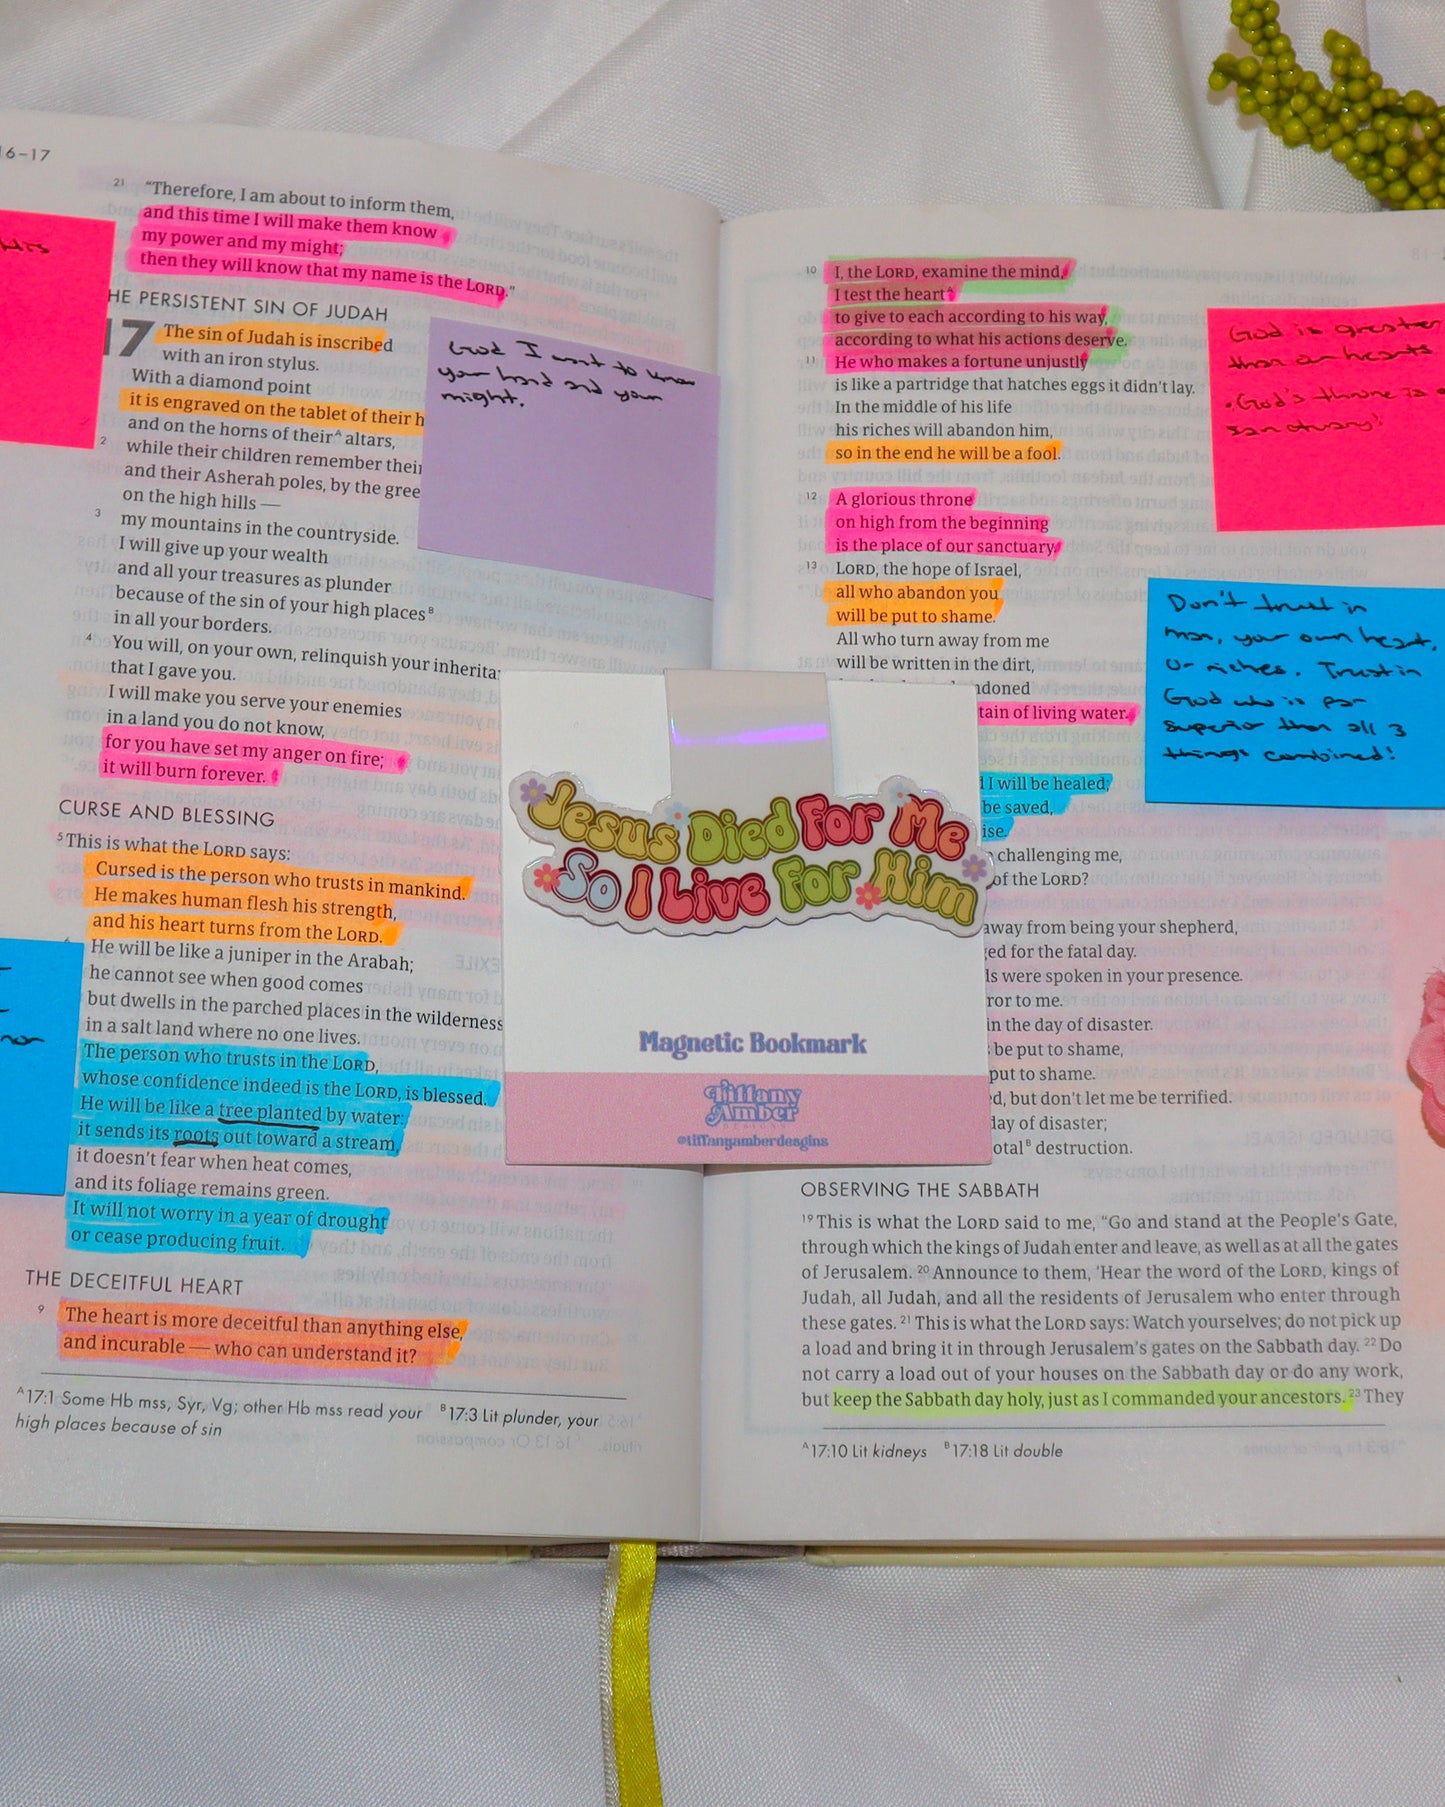 16–17
21 “Therefore, I am about to inform them,
and this time I will make them know
my power and my might;
then they will know that my name is the LORD.”
HE PERSISTENT SIN OF JUDAH
17 The sin of Judah is inscribed
with an iron stylus.
With a diamond point
it is engraved on the tablet of their h
and on the horns of their^A altars,
2 while their children remember their
and their Asherah poles, by the gree
on the high hills —
3 my mountains in the countryside.
I will give up your wealth
and all your treasures as plunder
because of the sin of your high places^B
in all your borders.
4 You will, on your own, relinquish your inherita
that I gave you.
I will make you serve your enemies
in a land you do not know,
for you have set my anger on fire;
it will burn forever.
CURSE AND BLESSING
5 This is what the LORD says:
Cursed is the person who trusts in mankind.
He makes human flesh his strength,
and his heart turns from the LORD.
He will be like a juniper in the Arabah;
he cannot see when good comes
but dwells in the parched places in the wilderness
in a salt land where no one lives.
The person who trusts in the LORD,
whose confidence indeed is the LORD, is blessed.
He will be like a tree planted by water:
it sends its roots out toward a stream,
it doesn’t fear when heat comes,
and its foliage remains green.
It will not worry in a year of drought
or cease producing fruit.
THE DECEITFUL HEART
9 The heart is more deceitful than anything else,
and incurable — who can understand it?
^A 17:1 Some Hb mss, Syr, Vg; other Hb mss read your ^B 17:3 Lit plunder, your
high places because of sin
God I want to know
your hand and your
might.
Jesus Died For Me
So I Live For Him
Magnetic Bookmark
Tiffany
Amber
DESIGNS
@tiffanyamberdesgins
10 I, the LORD, examine the mind,
I test the heart^A
to give to each according to his way,
according to what his actions deserve.
11 He who makes a fortune unjustly
is like a partridge that hatches eggs it didn’t lay.
In the middle of his life
his riches will abandon him,
so in the end he will be a fool.
12 A glorious throne
on high from the beginning
is the place of our sanctuary.
13 LORD, the hope of Israel,
all who abandon you
will be put to shame.
All who turn away from me
will be written in the dirt,
ndoned
tain of living water.
I will be healed;
be saved,
ise.
challenging me,
of the LORD?
away from being your shepherd,
ed for the fatal day.
ds were spoken in your presence.
ror to me.
in the day of disaster.
be put to shame,
put to shame.
d, but don’t let me be terrified.
day of disaster;
otal^B destruction.
OBSERVING THE SABBATH
19 This is what the LORD said to me, “Go and stand at the People’s Gate,
through which the kings of Judah enter and leave, as well as at all the gates
of Jerusalem. 20 Announce to them, ‘Hear the word of the LORD, kings of
Judah, all Judah, and all the residents of Jerusalem who enter through
these gates. 21 This is what the LORD says: Watch yourselves; do not pick up
a load and bring it in through Jerusalem’s gates on the Sabbath day. 22 Do
not carry a load out of your houses on the Sabbath day or do any work,
but keep the Sabbath day holy, just as I commanded your ancestors. 23 They
^A 17:10 Lit kidneys ^B 17:18 Lit double
God is greater
than our hearts
• God's throne is a
sanctuary!
Don't trust in
man, your own heart,
or riches. Trust in
God who is far
superior than all 3
things combined!